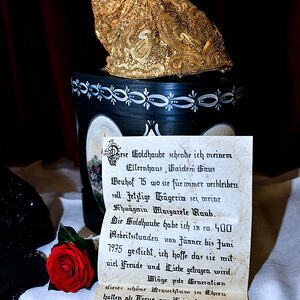 Diese Goldhaube schenke ich meinem
Elternhaus,
Neuhof 75 wo sie für immer verbleiben
soll. Jetzige Trägerin sei meine
Schwägin Margarete Raab.
Die Goldhaube habe ich in ca. 400
Arbeitsstunden von Jänner bis Juni
1975 gestickt, ich hoffe das sie mit
viel Freude und Liebe getragen wird.
Möge jede Generation
dieses schöne Brauchtum in Ehren
halten als